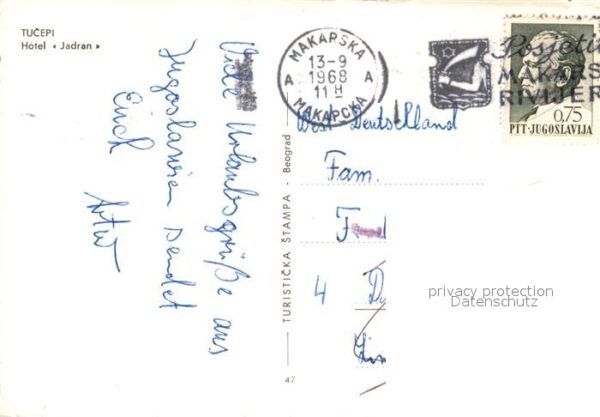 TUČEPI
Hotel « Jadran »
Viele Urlaubsgrüße aus
Jugoslawien sendet
Euch
MAKARSKA
13-9
1968
11 H
A A
МАКАРСКА
Posjeti
MAKARS
RIVIJER
0,75
PTT-JUGOSLAVIJA
West-Deutschland
Fam.
4 D
privacy protection
Datenschutz
TURISTIČKA ŠTAMPA - Beograd
47